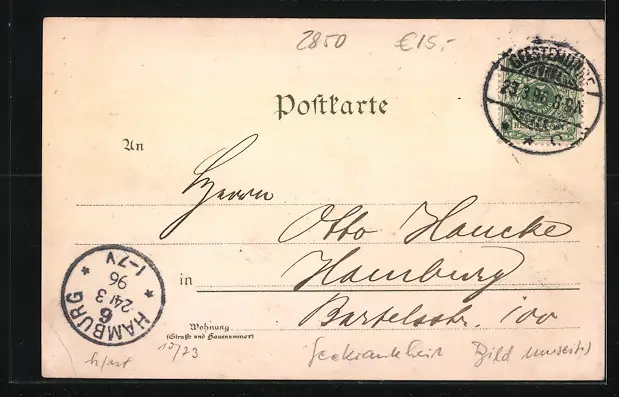 2850 €15,-
GEESTEMÜNDE
23/3 96. 8-9N.
Postkarte
An
Herrn
Otto Haucke
in Hamburg
Bartelsstr. 100
Wohnung
(Straße und Hausnummer)
HAMBURG
6
24/3
96
1-7V
Seekrankheit Bild umseit.)